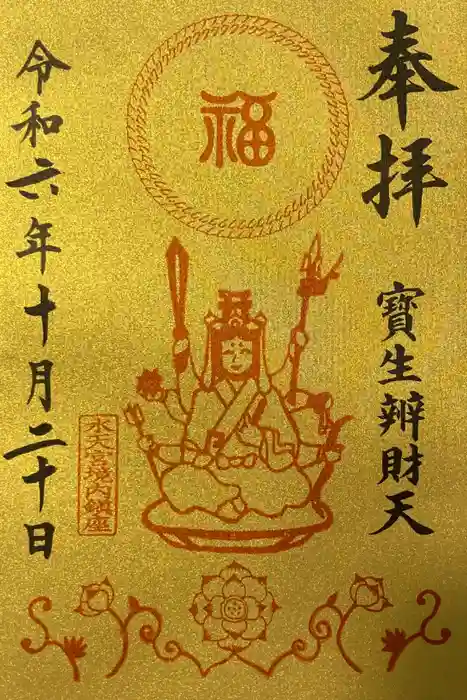 奉拝
寶生辨財天
福
水天宮境内鎮座
令和六年十月二十日